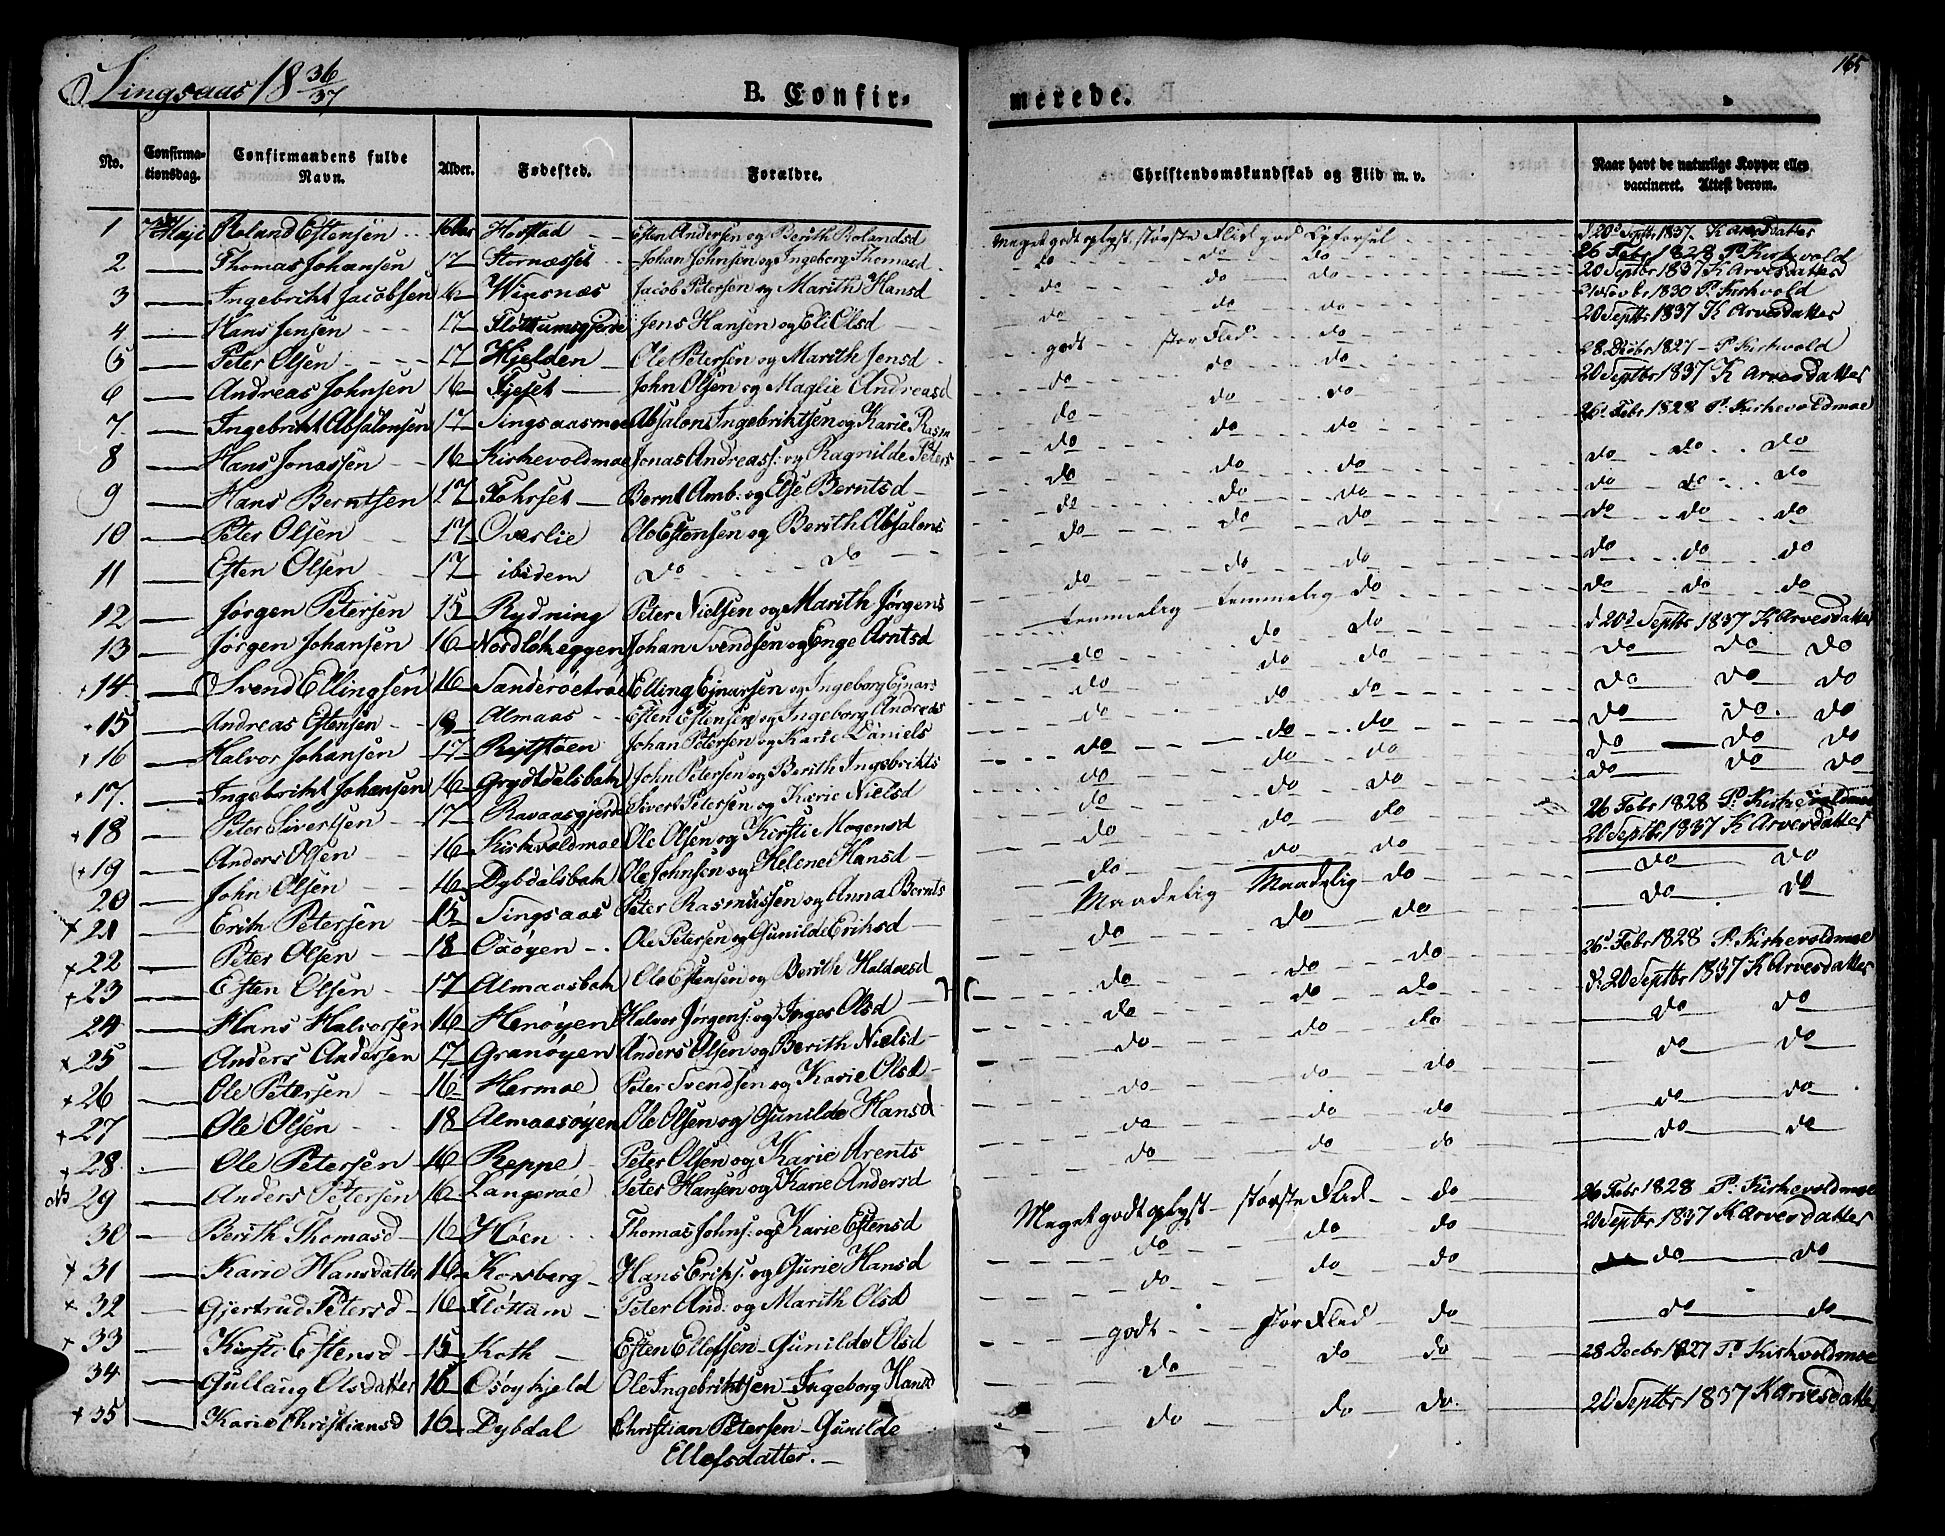 Singsaas 18 36/37
B. Confir-
merede.
165
No.
Confirma-
tionsdag.
Confirmandens fulde
Navn.
Alder.
Fødested.
Forældre.
Christendomskundskab og Flid m. v.
Naar havt de naturlige Kopper eller
vaccineret. Attest derom.
1 7de Maji Roland Estensen 16 Aar Horstad Esten Andersen og Berith Rolandsd Meget godt oplyst største Flid god Opførsel d 20d Septbr 1837. K Arvesdatter
2 Thomas Johansen 17 Stornæsset Johan Johnsen og Ingeborg Thomasd do do do 26 Febr 1828 P. Kirkvold
3 Ingebriht Jacobsen 16 Winsnæs Jacob Petersen og Marith Hansd do do do 20 Septbr 1837 K Arvesdatter
4 Hans Jensen 17 Fløttumsgjerde Jens Hansen og Eli Olsd do do do Novbr 1830 P. Kirkvold
5 Peter Olsen 17 Kjelden Ole Petersen og Marith Jensd godt stor Flid do 20 Septbr 1837 K Arvesdatter
6 Andreas Johnsen 16 Fjeset John Olsen og Maglie Andreasd do do do 28 Decbr 1827 P. Kirkvold
7 Ingebriht Absalonsen 17 Singsaasmoe Absalon Ingebrihtsen og Karie Rasm do do do 20 Septbr 1837 K Arvesdatter
8 Hans Jonassen 16 Kirkevoldmoe Jonas Andreass: og Ragnilde Peters do do do 26 Febr 1828 P. Kirkevoldmoe
9 Hans Berntsen 17 Fohrset Bernt Amb: og Else Berntsd do do do do do do
10 Peter Olsen 17 Overlie Ole Estensen og Berith Absalons do do do do do do
11 Esten Olsen 17 ibidem do do do do do do do do
12 Jørgen Petersen 15 Rydning Peter Nielsen og Marith Jørgens do do do do do do
13 Jørgen Johansen 16 Nordløheggen Johan Svendsen og Enge Arntsd temmelig temmelig do do do do
14 Svend Ellingsen 16 Sanderøetrøe Elling Ejnarsen og Ingeborg Ejnars do do do d. 20d Septbr 1837 K Arvesdatter
15 Andreas Estensen 18 Almaas Esten Estensen og Ingeborg Andreas do do do do do do
16 Halvor Johansen 17 Rejtstøen Johan Petersen og Karie Daniels do do do do do do
17. Ingebriht Johansen 16 Grydtdalsbak John Petersen og Berith Ingebrikts do do do do do do
18 Peter Sivertsen 17 Ravaasgjerde Sivert Petersen og Karie Nielsd do do do do do do
19 Anders Olsen 16 Kirkvoldmoe Ole Olsen og Kirsti Mogensd do do do do do do
20 John Olsen 16 Dybdalsbak Ole Johnsen og Helene Hansd do do do 26 Febr 1828 P. Kirkevoldmoe
21 Erik Petersen 15 Singsaas Peter Rasmussen og Anna Bernts do do do 20 Septbr 1837 K Arvesdatter
22 Peter Olsen 18 Osøyen Ole Petersen og Gunilde Eriksd Maadelig Maadelig do do do
23 Esten Olsen 17 Almaasbak Ole Estensen og Berith Haldoesd do do do do do
24 Hans Halvorsen 16 Henøyen Halvor Jørgens: og Inger Olsd do do do 26d Febr 1828 P. Kirkevoldmoe
25 Anders Andersen 17 Granøyen Anders Olsen og Berith Nielsd do do do d. 20 Septbr 1837 K Arvesdatter
26 Ole Petersen 16 Hermoe Peter Svendsen og Karie Olsd do do do do do
27 Ole Olsen 18 Almaasøyen Ole Olsen og Gunilde Hansd do do do do do
28 Ole Petersen 16 Reppe Peter Olsen og Karie Arents do do do do do
NB 29 Anders Petersen 16 Langerøe Peter Hansen og Karie Andersd do do do do do
30 Berith Thomasd 16 Høen Thomas Johns: og Karie Estensd Meget godt oplyst største Flid do 26 Febr 1828 P. Kirkevoldmoe
31 Karie Hansdatter 16 Korsberg Hans Eriks: og Gurie Hansd do do do 20 Septbr 1837 K Arvesdatter
32 Gjertrud Petersd 16 Fløttum Peter And: og Marith Olsd do do do do do
33 Kirsti Estensd 15 Koth Esten Ellefsen Gunilde Olsd godt stor Flid do do do
34 Gullaug Olsdatter 16 Osøykjeld Ole Ingebrihtsen Ingeborg Hansd do do do 28 Decbr 1827 P. Kirkvoldmoe
35 Karie Christiansd 16 Dybdal Christian Petersen Gunilde do do do 20 Septbr 1837 K Arvesdatter
Ellefsdatter.